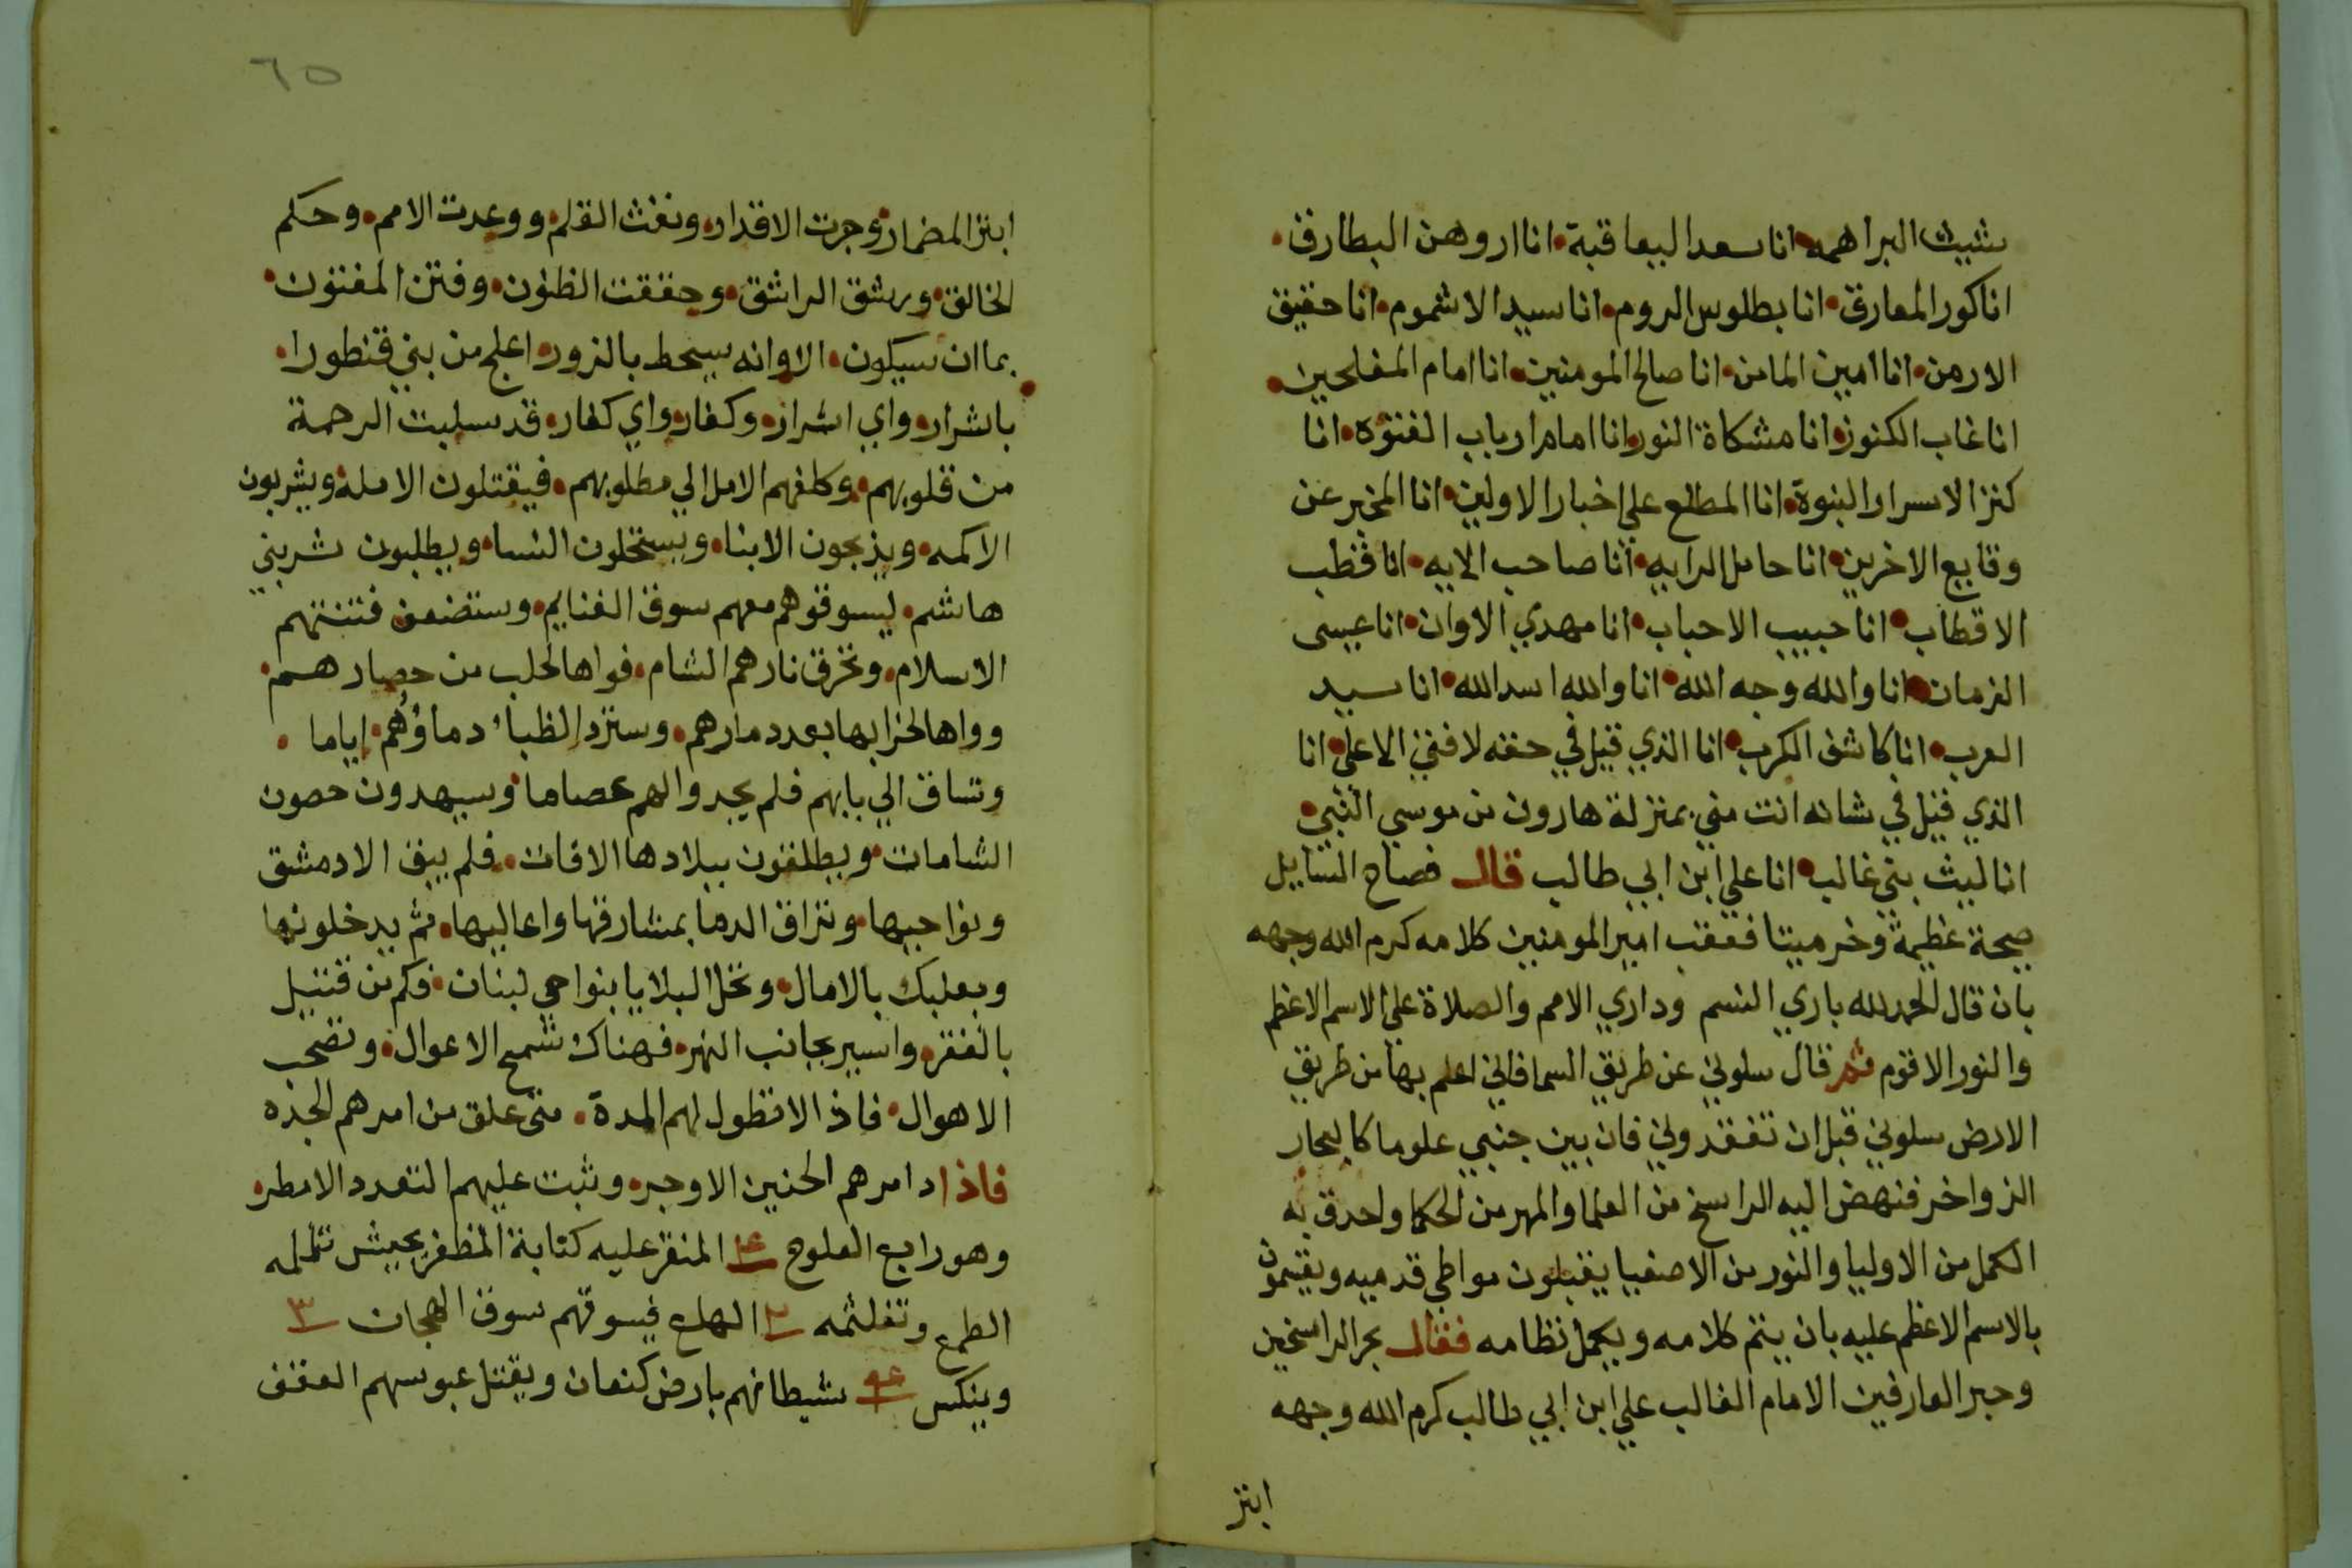 شيث البراهمه انا سعد اليعاقبة انا اروهن البطارق
انا كور المعارق انا بطلوس الروم انا سيد الاشموم انا حقيق
الارمن انا امين المامن انا صالح المومنين انا امام المفلحين
انا غاب الكنوز انا مشكاة النور انا امام ارباب الفتوه انا
كنز الاسرار النبوة انا المطلع على اخبار الاولين انا المخبر عن
وقايع الاخرين انا حامل الرايه انا صاحب الايه انا قطب
الاقطاب انا حبيب الاحباب انا مهدي الاوان انا عيسى
الزمان انا والله وجه الله انا والله اسد الله انا سيد
العرب انا كاشف الكرب انا الذي قيل في حقه لا فتى الا علي انا
الذي قيل في شانه انت مني بمنزلة هارون من موسي النبي
انا ليث بني غالب انا علي ابن ابي طالب قال فصاح السايل
صيحة عظيمة وخر ميتا فعقب امير المومنين كلامه كرم الله وجهه
بان قال الحمد لله باري النسم وداري الامم والصلاة على الاسم الاعظم
والنور الاقوم ثم قال سلوني عن طريق السما فاني اعلم بها من طريق
الارض سلوني قبل ان تفقدوني فان بين جنبي علوما كالبحار
الزواخر فنهض اليه الراسخ من العلما والمهر من الحكما واحدق به
الكمل من الاوليا والنور من الاصفيا يقبلون مواطي قدميه ويقسمون
بالاسم الاعظم عليه بان يتم كلامه ويكمل نظامه فقال بحر الراسخين
وحبر العارفين الامام الغالب علي ابن ابي طالب كرم الله وجهه
ابتز
٦٥
ابتز المضمار وجرت الاقدار ونفث القلم ووعدت الامم وحكم
الخالق ورشق الراشق وحققت الظنون وفتن المفتون
بما ان سيكون الا وانه سيحط بالزور اعلج من بني قنطورا
باشرار واي اشرار وكفار واي كفار قد سلبت الرحمة
من قلوبهم وكلفهم الامل الي مطلوبهم فيقتلون الامله ويشربون
الاكمه ويذبحون الابنا ويستحلون النسا ويطلبون شر بني
هاشم ليسوقوهم معهم سوق الغنايم وستضعف فتنتهم
الاسلام وتحرق نارهم الشام فواها لحلب من حصارهم
وواها لخرابها بعد دمارهم وستزد الظباء دماؤهم اياما
وتساق الي بابهم فلم يجدوا لهم عصاما وسيهدون حصون
الشامات ويطلقون ببلادها الافات فلم يبق الا دمشق
ونواحيها وتراق الدما بمشارقها واعاليها ثم يدخلونها
وبعلبك بالامال وتحل البلايا بنواحي لبنان فكم من قتيل
بالقفر واسير بجانب النهر فهناك تسمع الاعوال وتصحب
الاهوال فاذا لا تطول لهم المدة متى علق من امرهم الجده
فاذا دامرهم الحنين الاوجر وثبت عليهم التعدد الامطر
وهو رابع العلوج المنقر عليه كتابة المظفر بجيش تململه
الطمع وتغلثمه الهلع فيسوقهم سوق الهجان ٣
وينكس شيطانهم بارض كنعان ويقتل عبوسهم العقف